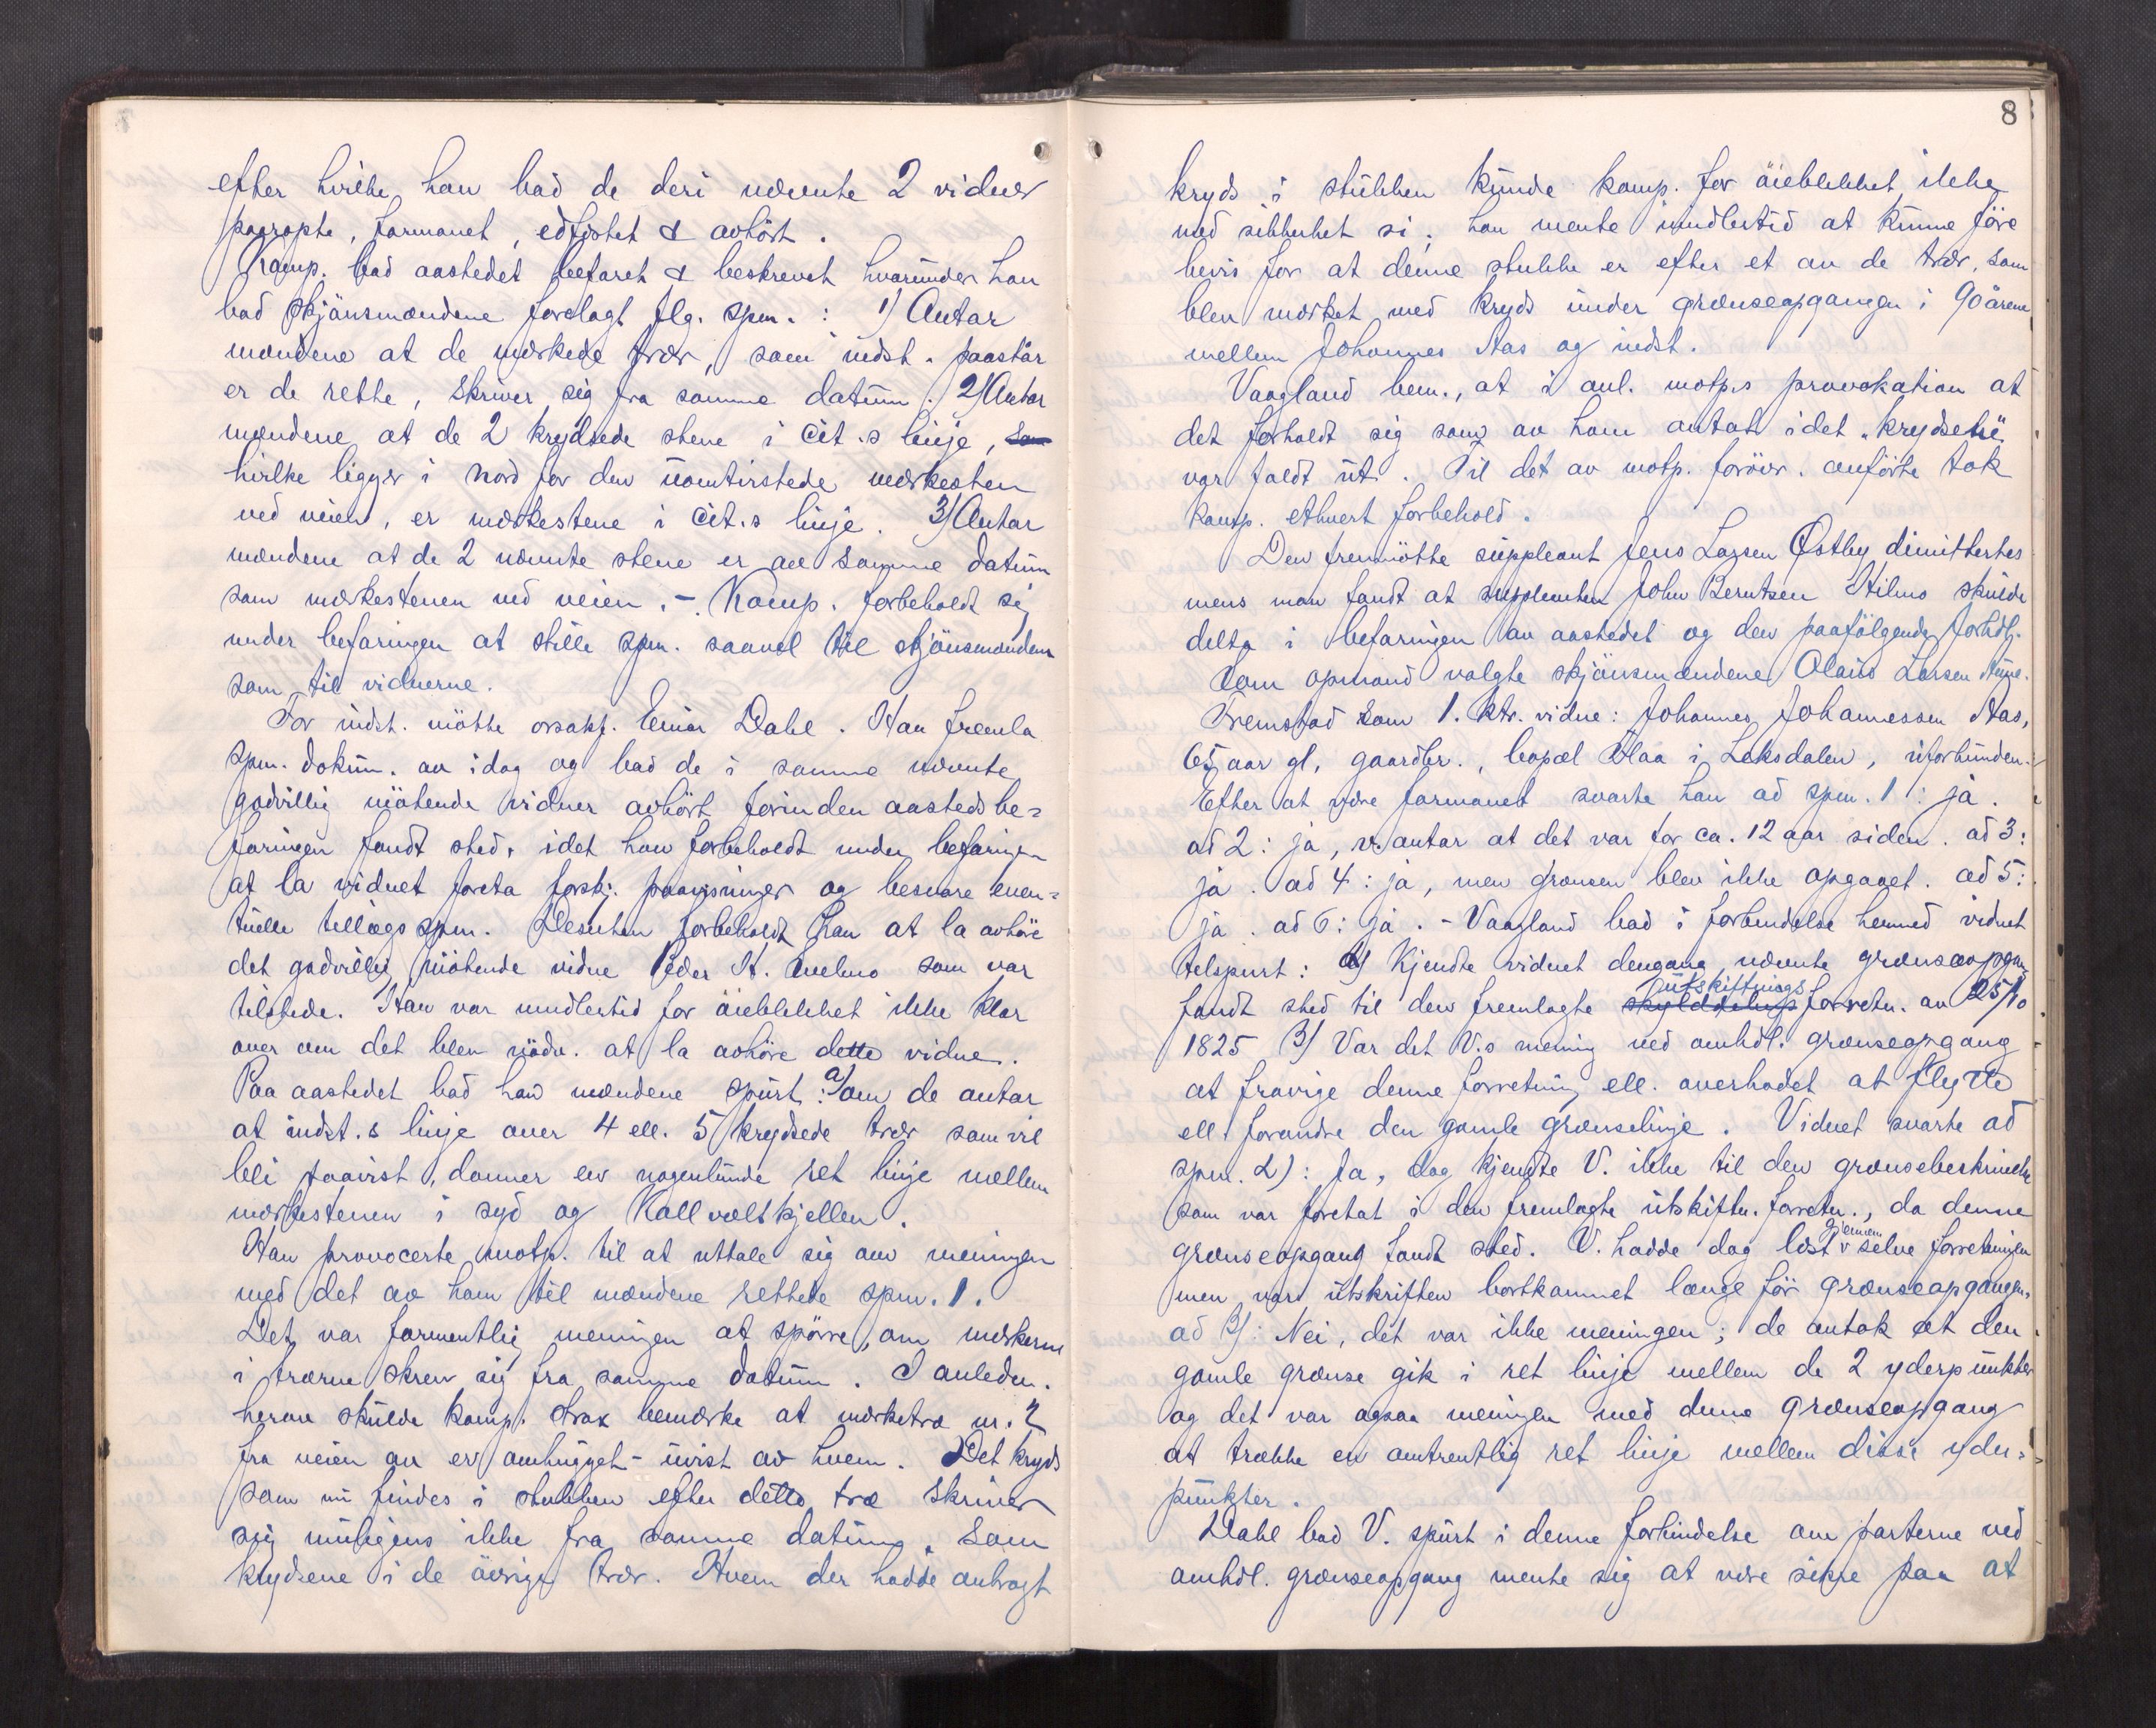 efter hvilke han bad de deri nævnte 2 vidner
paaropte, formanet, edfæstet & avhört.
Komp. bad aastedet befaret & beskrevet hvorunder han
bad skjönsmændene forelagt flg. spm.: 1) Antar
mændene at de merkede trær, som indst. paastår
er de rette, skriver sig fra samme datum. 2) Antar
mændene at de 2 krydsede stene i Cit.s linje, som
hvilke ligger i nord for den uomtvistede merkesten
ved veien, er merkestene i Cit.s linje. 3) Antar
mændene at de 2 nævnte stene er av samme datum
som merkestenen ved veien. - Komp. forbeholdt sig
under befaringen at stille spm. saavel til skjönsmændene
som til vidnerne.
For indst. mötte orsakf. Einar Dahl. Han fremla
spm. dokum. av idag og bad de i samme nævnte
godvillig mötende vidner avhört forinden aastedsbe=
faringen fandt sted, idet han forbeholdt under befaringen
at la vidnet foreta forskj. paavisninger og besvare even=
tuelle tillægsspm. Desuten forbeholdt han at la avhöre
det godvillig mötende vidne Peder H. Kvelmo som var
tilstede. Han var imidlertid for öieblikket ikke klar
over om det blev nödv. at la avhöre dette vidne.
Paa aastedet bad han mændene spurt: a) om de antar
at indst.s linje over 4 ell. 5 krydsede trær som vil
bli paavist, danner en nogenlunde ret linje mellem
merkestenen i syd og Kallvoltkjellen.
Han provocerte motp. til at uttale sig om meningen
med det av ham til mændene rettede spm. 1.
Det var formentlig meningen at spörre, om merkerne
i trærne skrev sig fra samme datum. I anledn.
herav skulde komp. strax bemerke at merketræ nr. 2
fra veien av er omhugget - uvist av hvem. Det kryds
som nu findes i stubben efter dette træ skriver
sig muligens ikke fra samme datum, som
krydsene i de övrige trær. Hvem der hadde anbragt
8
kryds i stubben kunde komp. for öieblikket ikke
med sikkerhet si; han mente imidlertid at kunne före
bevis for at denne stubbe er efter et av de trær, som
blev merket med kryds under grænseopgangen i 90årene
mellem Johannes Aas og indst.
Vaagland bem., at i anl. motp.s provokation at
det forholdt sig som av ham antat idet „krydsene"
var faldt ut. Til det av motp. forövr. anförte tok
komp. ethvert forbehold.
Den fremmötte suppleant Jens Larsen Østby dimittertes
mens man fandt at suppleanten John Berntsen Hilmo skulde
delta i befaringen av aastedet og den paafölgende forhdl.
Som opmand valgte skjönsmændene Olaus Larsen Aune.
Fremstod som 1. ktr. vidne: Johannes Johannessen Aas,
65 aar gl, gaardbr., bopæl Blaa i Leksdalen, uforbunden.
Efter at være formanet svarte han ad spm. 1: ja.
ad 2: ja, v. antar at det var for ca. 12 aar siden. ad 3:
ja. ad 4: ja, men grænsen blev ikke opgaaet. ad 5:
ja. ad 6: ja. - Vaagland bad i forbindelse hermed vidnet
tilspurt: α) Kjendte vidnet dengang nævnte grænseopgang
fandt sted til den fremlagte skylddelings utskiftningsforretn. av 25/10
1825 β) Var det V.s mening ved omhdl. grænseopgang
at fravige denne forretning ell. overhodet at flytte
ell. forandre den gamle grænselinje. Vidnet svarte ad
spm. α): Ja, dog kjendte V. ikke til den grænsebeskrivelse
som var foretat i den fremlagte utskiftn. forretn., da denne
grænseopgang fandt sted. V. hadde dog læst gjennem selve forretningen
men var utskriften bortkommet længe för grænseopgangen.
ad β): Nei, det var ikke meningen; de antok at den
gamle grænse gik i ret linje mellem de 2 yderpunkter
og det var ogsaa meningen med denne grænseopgang
at trække en omtrentlig ret linje mellem disse yder=
punkter.
Dahl bad V. spurt i denne forbindelse om parterne ved
omhdl. grænseopgang mente sig at være sikre paa at